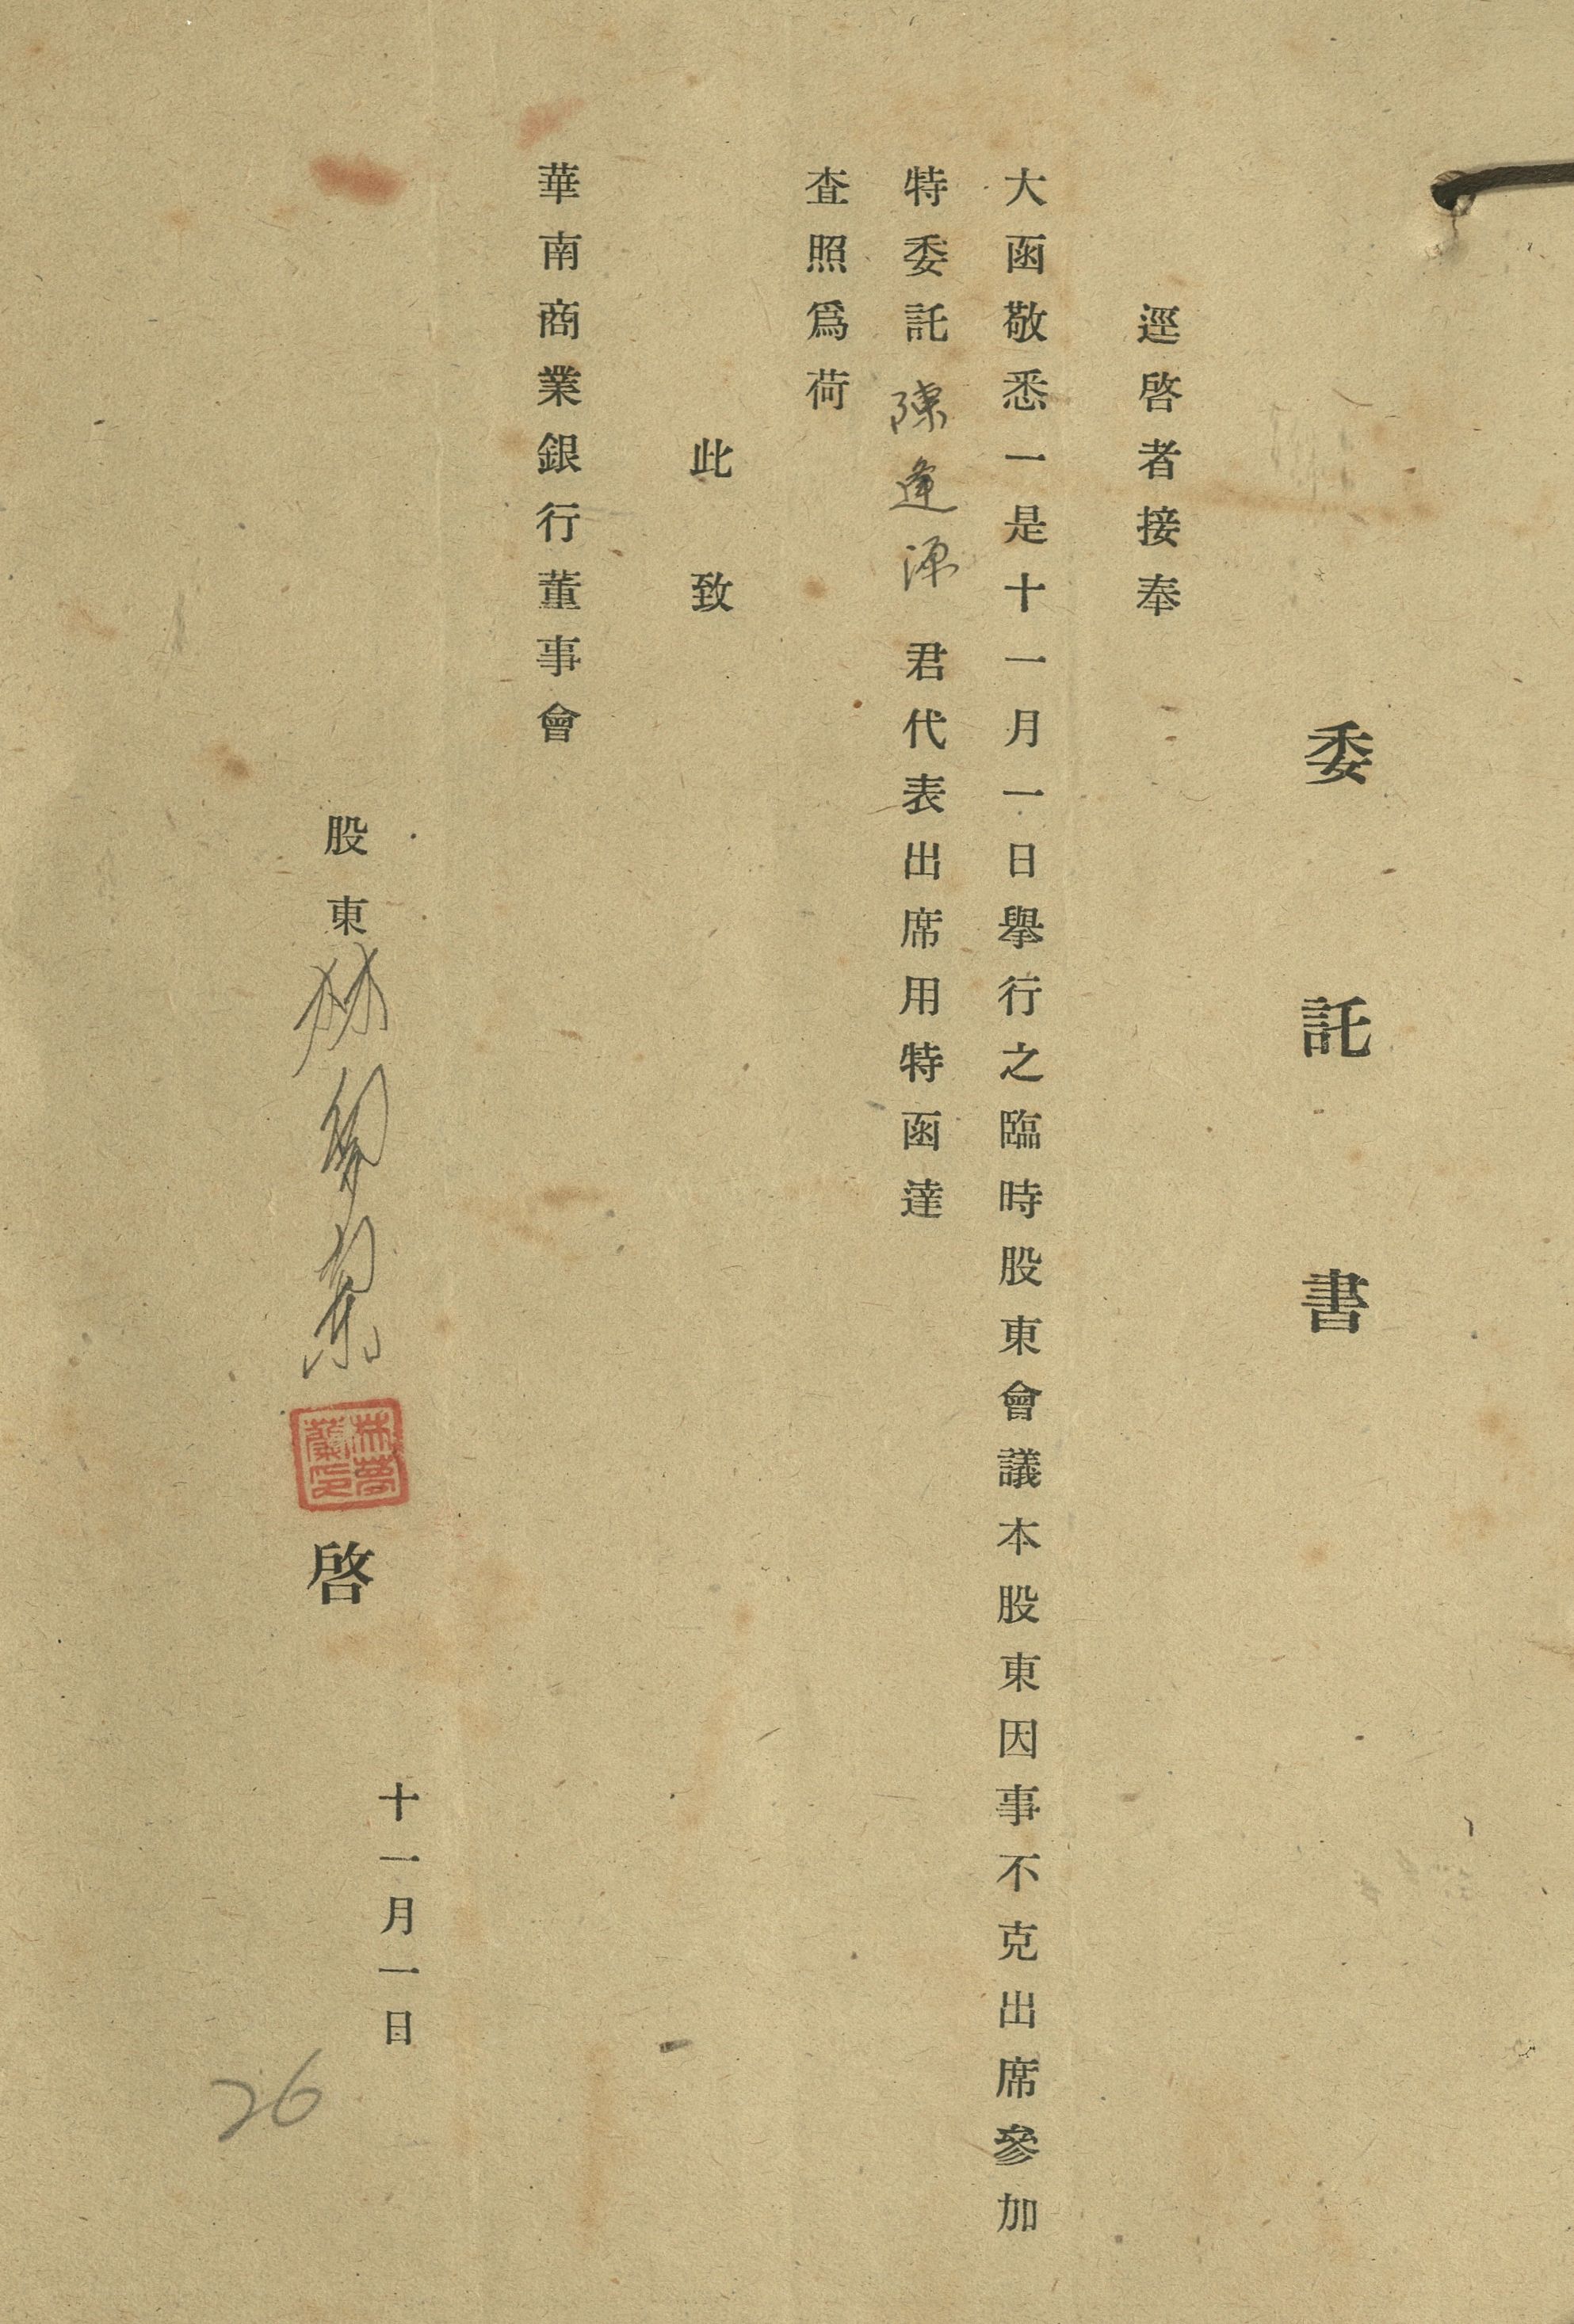 委託書
逕啓者接奉
大函敬悉一是十一月一日舉行之臨時股東會議本股東因事不克出席參加
特委託陳逢源君代表出席用特函達
查照爲荷
此致
華南商業銀行董事會
股東林夢蘭啓
林夢蘭印
十一月一日
26